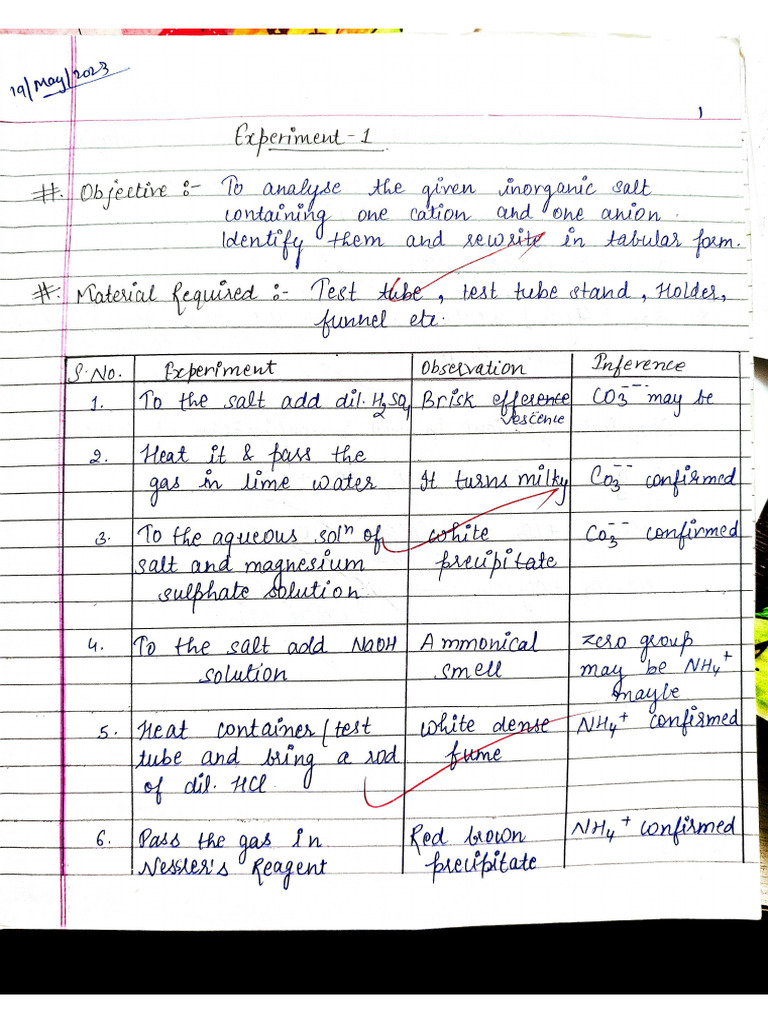 19/May/2023
1
Experiment-1
#. Objective :- To analyse the given inorganic salt
containing one cation and one anion.
Identify them and rewrite in tabular form.
#. Material Required :- Test tube, test tube stand, Holder,
funnel etc.
S.No. Experiment Observation Inference
1. To the salt add dil. H2SO4 Brisk efference CO3-- may be
vescence
2. Heat it & pass the
gas in lime water It turns milky CO3-- confirmed
3. To the aqueous soln of white CO3-- confirmed
salt and magnesium precipitate
sulphate solution
4. To the salt add NaOH Ammonical zero group
solution smell may be NH4+
maybe
5. Heat container/test white dense NH4+ confirmed
tube and bring a rod fume
of dil. HCl.
6. Pass the gas in Red brown NH4+ confirmed
Nessler's Reagent precipitate